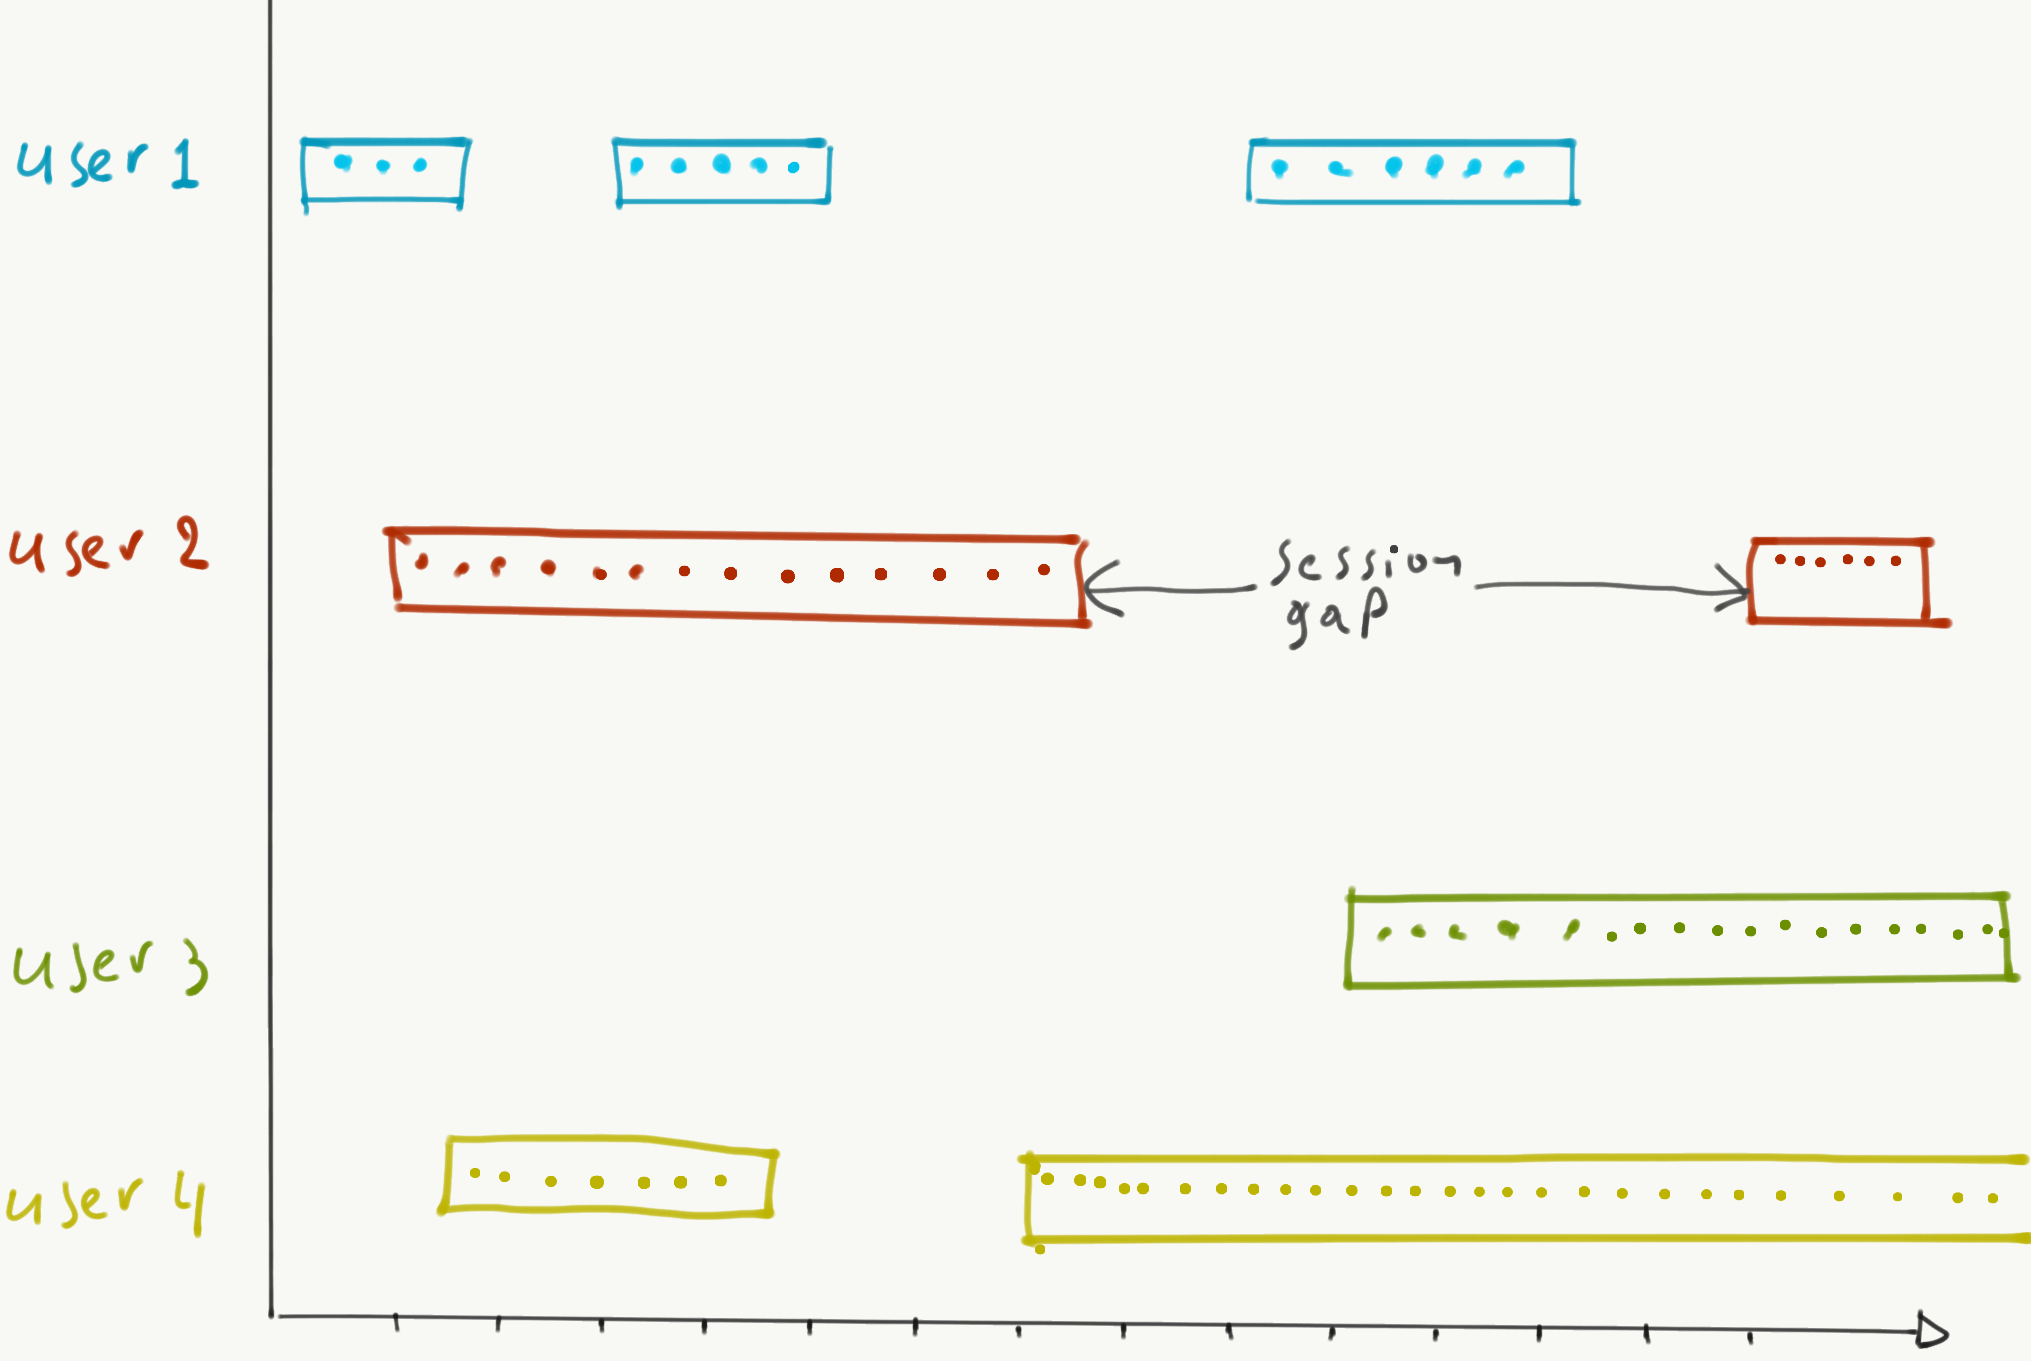 user 1
user 2
session
gap
user 3
user 4